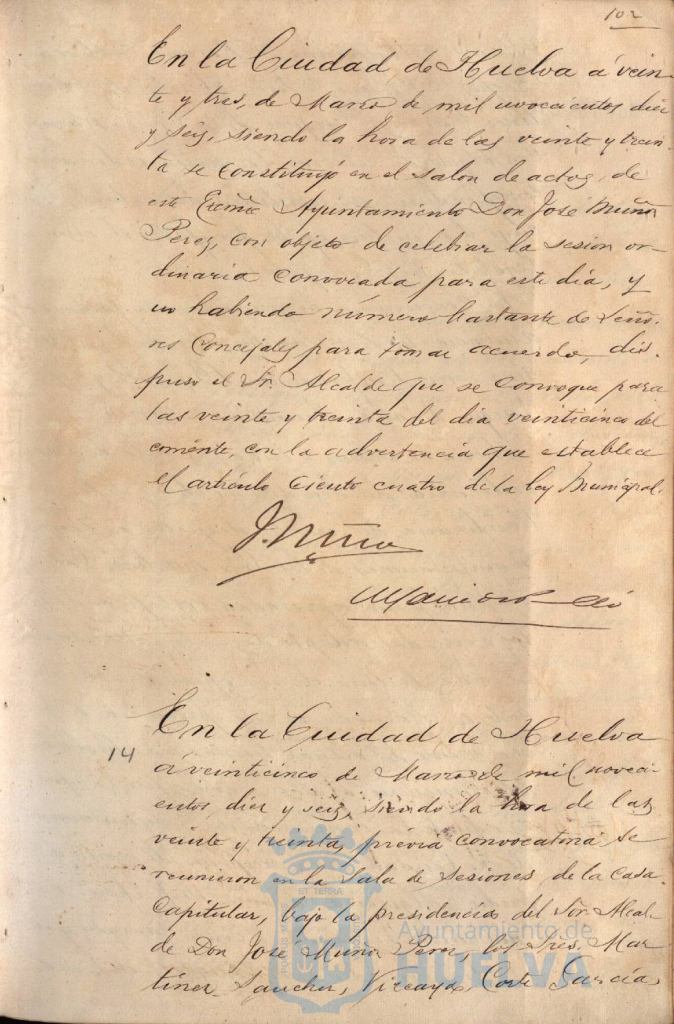 102
En la Ciudad de Huelva á vein-
te y tres, de Marzo de mil novecientos diez
y seis, siendo la hora de las veinte y trein-
ta se constituyó en el salon de actos, de
este Excmo Ayuntamiento Don José Muñoz
Perez, con objeto de celebrar la sesion or-
dinaria convocada para este dia, y
no habiendo número bastante de Seño-
res Concejales para tomar acuerdo, dis-
puso el Sr. Alcalde que se convoque para
las veinte y treinta del dia veinticinco del
corriente, con la advertencia que establece
el artículo ciento cuatro de la ley Municipal.
J. Muñoz
En la Ciudad de Huelva
14
á veinticinco de Marzo de mil noveci-
entos diez y seis, siendo la hora de las
veinte y treinta, prévia convocatoria se
reunieron en la Sala de Sesiones de la Casa
Capitular, bajo la presidencia del Sor. Alcal-
de Don José Muñoz Perez, los Sres. Mar-
tinez Sanchez, Vizcaya, Corte Garcia,
Ayuntamiento de
HUELVA